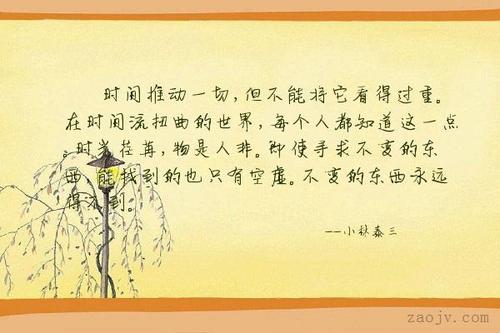 时间推动一切,但不能将它看得过重。
在时间流扭曲的世界,每个人都知道这一点
.时光荏苒,物是人非。即使寻求不变的东
西,能找到的也只有空虚。不变的东西永远
得不到。
--小林泰三
zaojv.com